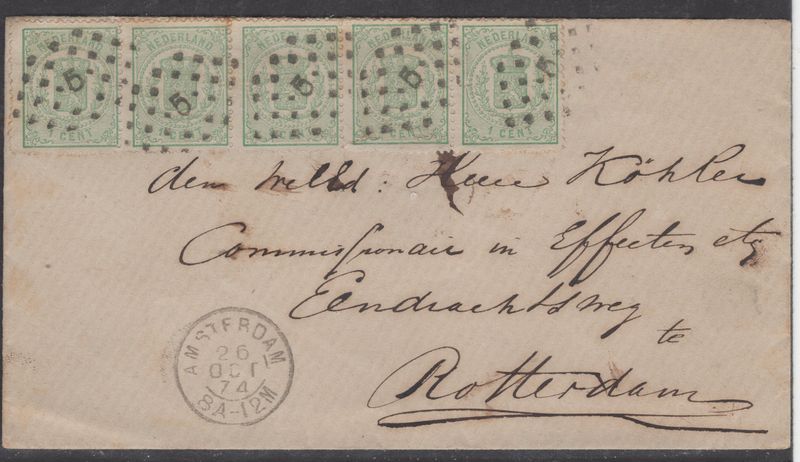 NEDERLAND NEDERLAND NEDERLAND NEDERLAND NEDERLAND
5 5 5 5 5
1 CENT 1 CENT 1 CENT 1 CENT 1 CENT
den Heer Köhler
Commissionair in Effecten etc
Eendrachtsweg
te
Rotterdam
AMSTERDAM
26
OCT
74
8A-12M